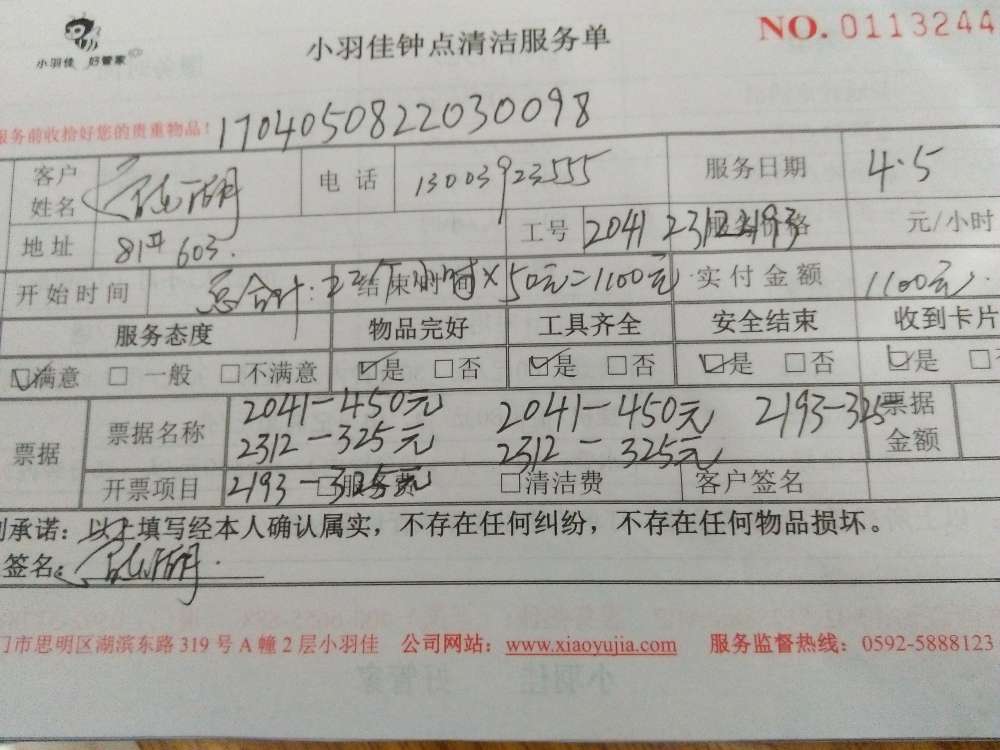 小羽佳 好管家
小羽佳钟点清洁服务单
NO. 0113244
服务前收拾好您的贵重物品！
1704050822030098
客户姓名 电话 13003923555 服务日期 4.5
地址 81# 603. 工号 2041 2312 2193 服务价格 元/小时
开始时间 总合计: 结束时间 ×50元=1100元 实付金额 1100元.
服务态度 物品完好 工具齐全 安全结束 收到卡片
☑满意 □一般 □不满意 ☑是 □否 ☑是 □否 ☑是 □否 ☑是 □
票据 票据名称 2041-450元 2041-450元 2193-325 票据金额
2312-325元 2312-325元
开票项目 2193-325元 □服务费 □清洁费 客户签名
承诺：以上填写经本人确认属实，不存在任何纠纷，不存在任何物品损坏。
签名:
门市思明区湖滨东路319号A幢2层小羽佳 公司网站：www.xiaoyujia.com 服务监督热线：0592-5888123